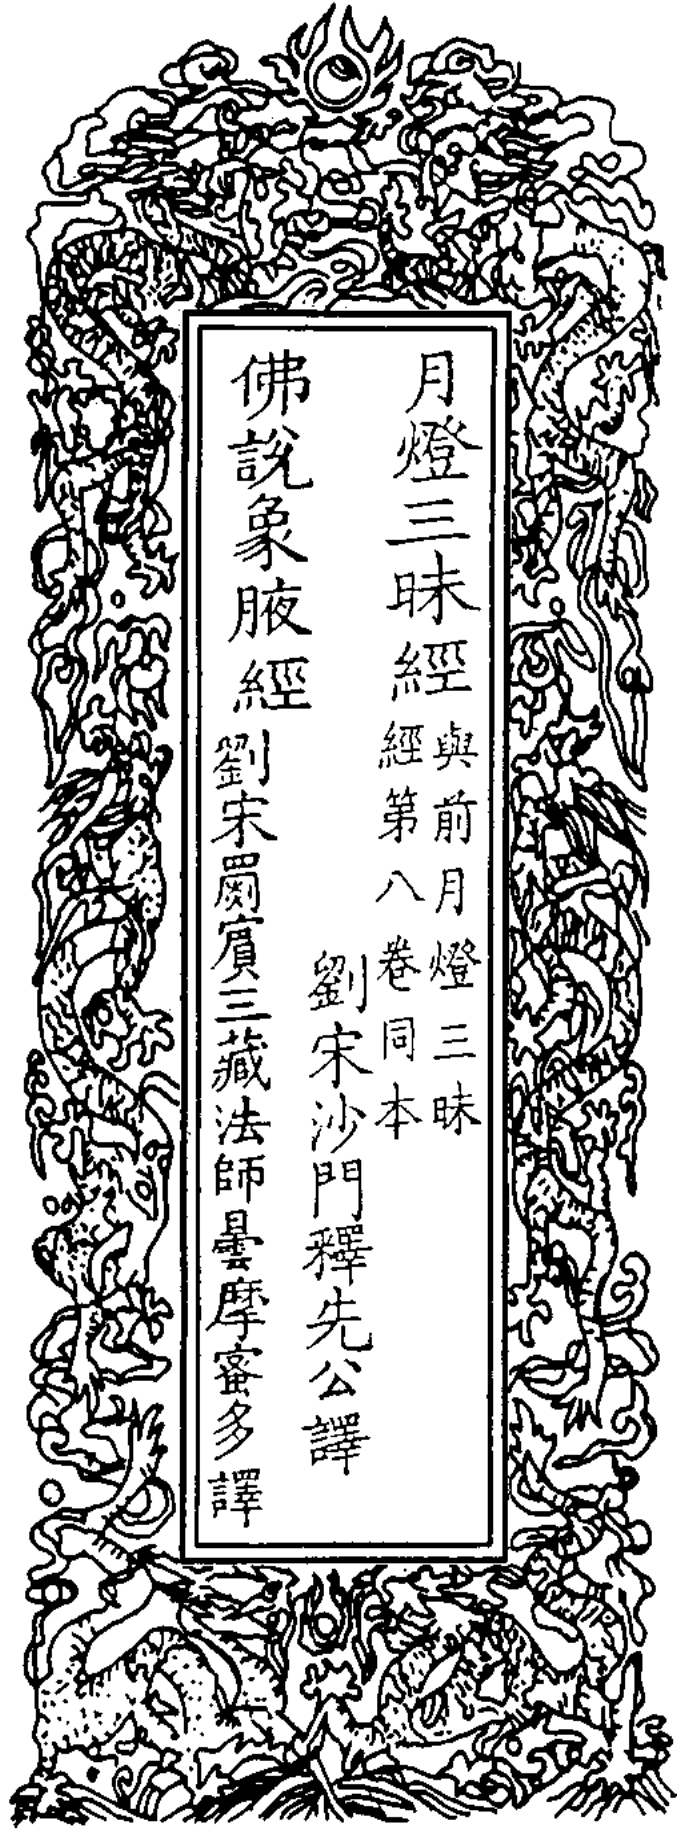 月燈三昧經
與前月燈三昧
經第八卷同本
劉宋沙門釋先公譯
佛說象腋經
劉宋罽賓三藏法師曇摩蜜多譯